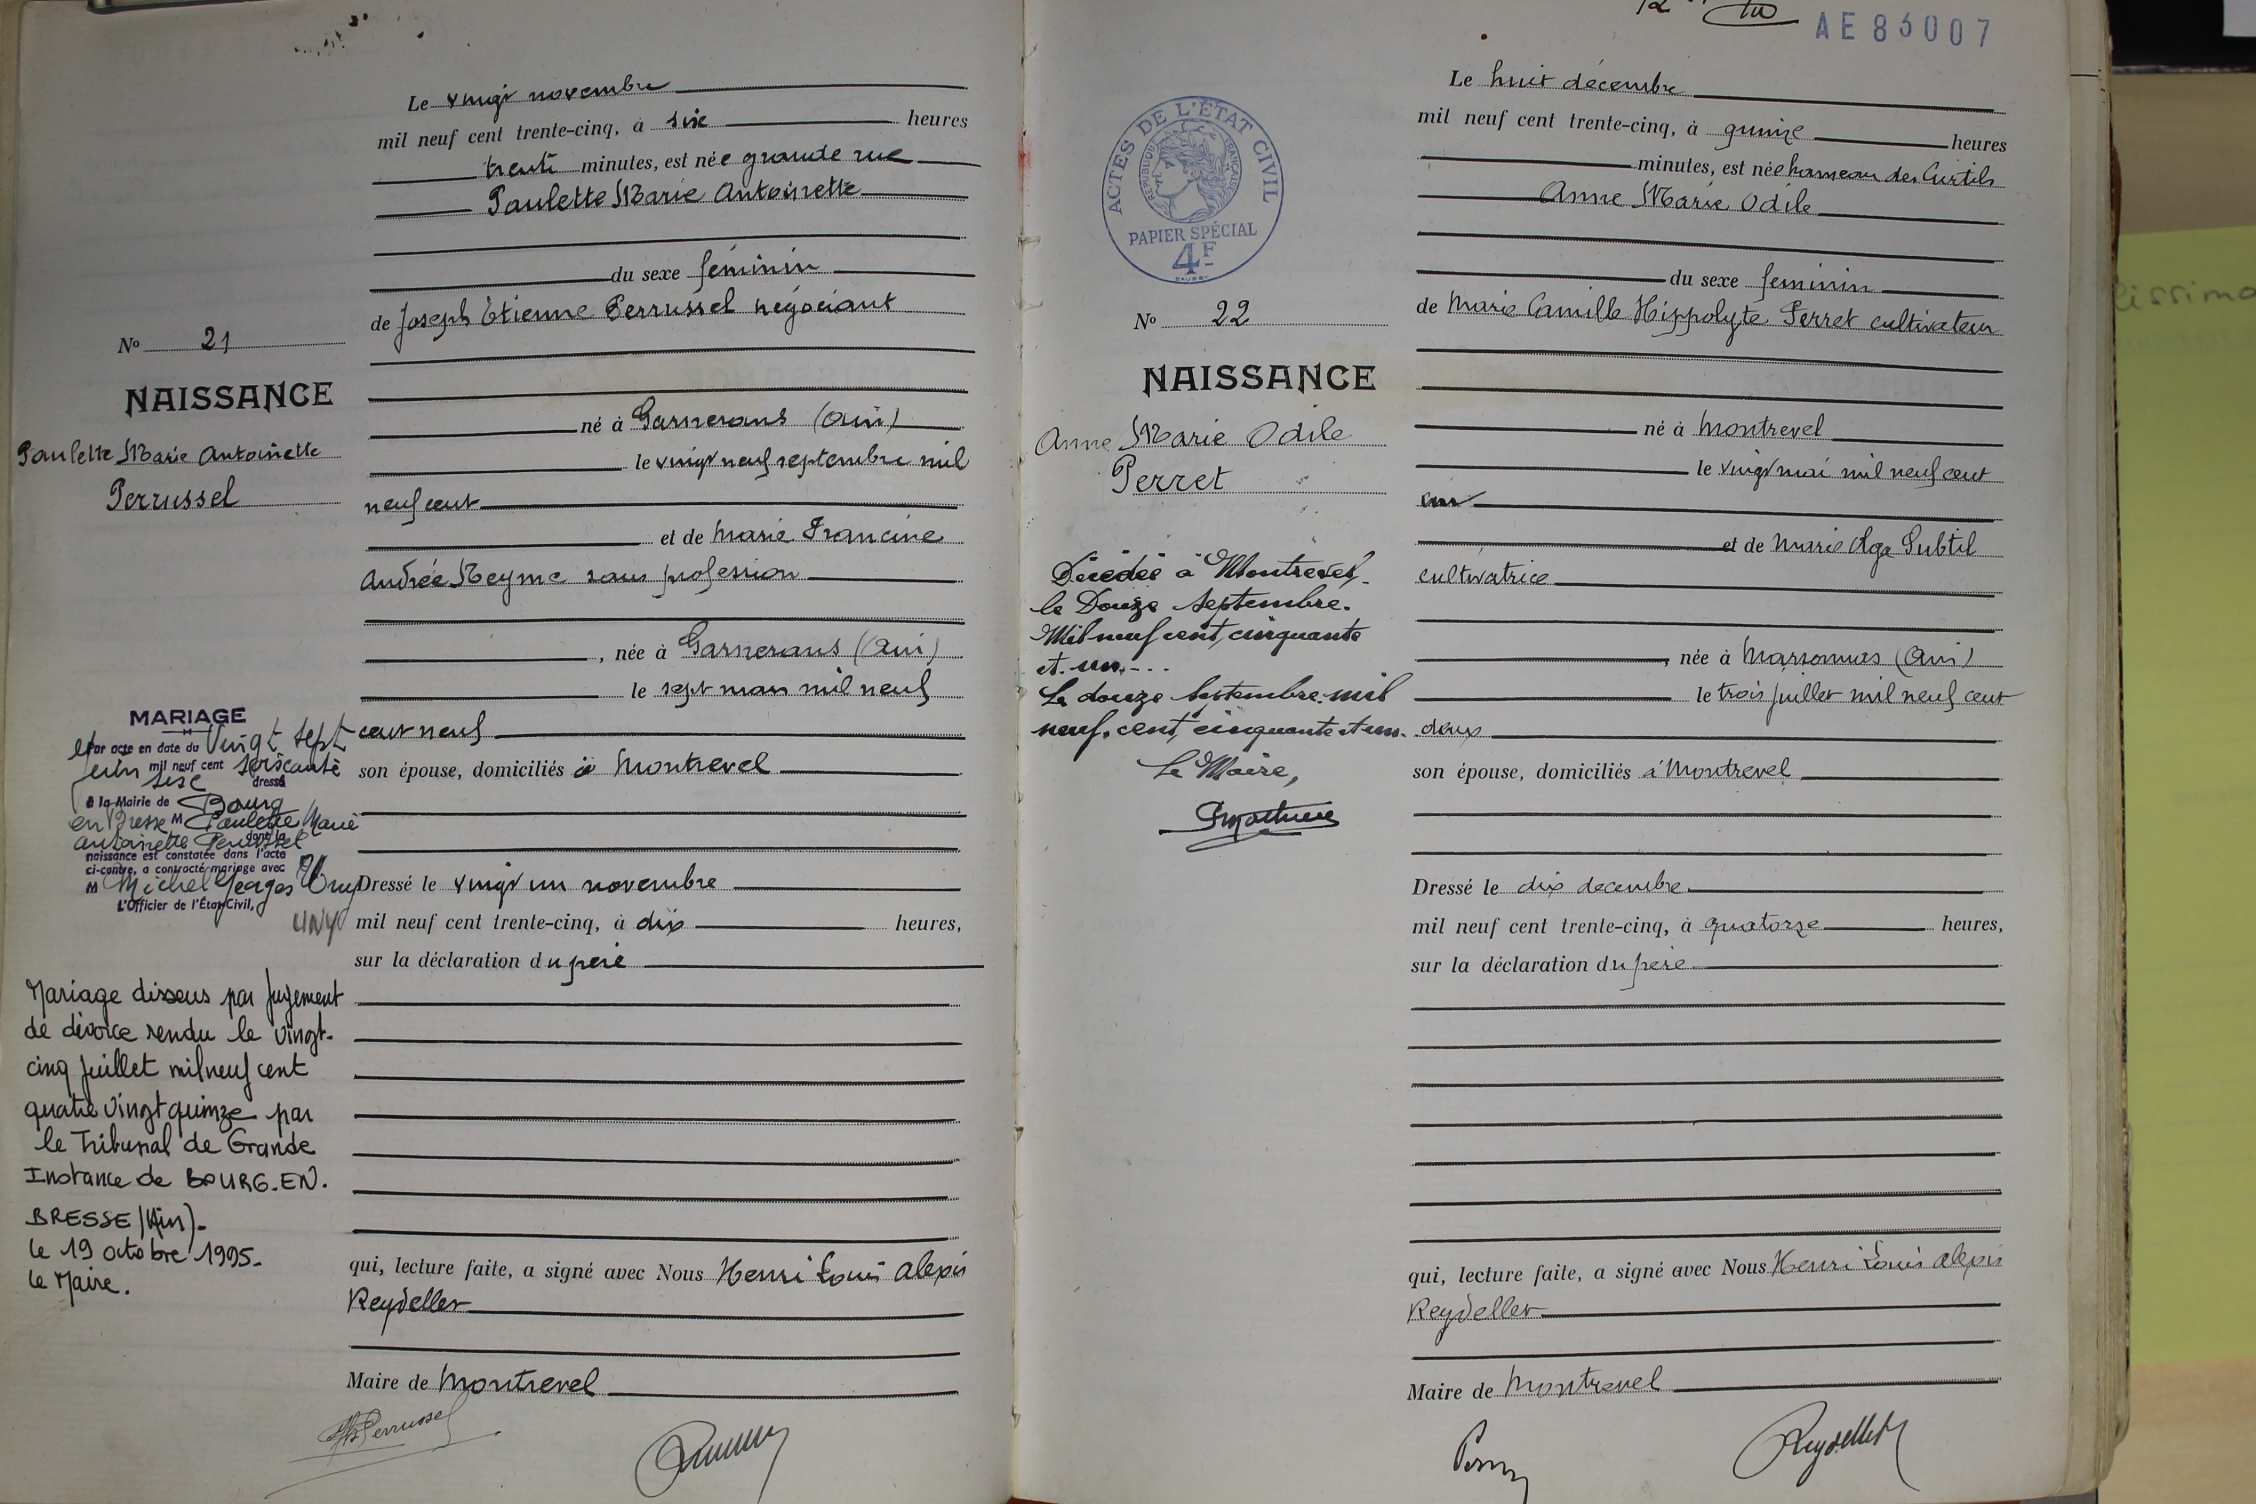 Le vingt novembre
mil neuf cent trente-cinq, à six heures
trente minutes, est née grande rue
Paulette Marie Antoinette
du sexe féminin
de Joseph Etienne Perrussel négociant
No 21
NAISSANCE
Paulette Marie Antoinette
Perrussel
né à Garnerans (Ain)
le vingt neuf septembre mil
neuf cent
et de Marie Francine
Andrée sans profession
, née à Garnerans (Ain)
le sept mars mil neuf
cent neuf
son épouse, domiciliés à Montrevel
MARIAGE
Par acte en date du Vingt sept
juin mil neuf cent soixante
six dressé
à la Mairie de Bourg
en Bresse M Paulette Marie
Antoinette Perrussel dont la
naissance est constatée dans l'acte
ci-contre, a contracté mariage avec
M Michel Georges
L'Officier de l'État Civil,
UNY
Dressé le vingt un novembre
mil neuf cent trente-cinq, à dix heures,
sur la déclaration du père
Mariage dissous par jugement
de divorce rendu le vingt-
cinq juillet mil neuf cent
quatre vingt quinze par
le Tribunal de Grande
Instance de BOURG.EN.
BRESSE (Ain).
le 19 octobre 1995.
le Maire.
qui, lecture faite, a signé avec Nous Henri Louis Alexis
Reydellet
Maire de Montrevel
Perrussel
AE 83007
Le huit décembre
mil neuf cent trente-cinq, à quinze heures
minutes, est née hameau des Curtils
Anne Marie Odile
du sexe féminin
de Marie Camille Hippolyte Perret cultivateur
ACTES DE L'ÉTAT CIVIL
RÉPUBLIQUE FRANÇAISE
PAPIER SPÉCIAL
4F
No 22
NAISSANCE
Anne Marie Odile
Perret
né à Montrevel
le vingt mai mil neuf cent
un
et de Marie Olga Subtil
cultivatrice
, née à Marsonnas (Ain)
le trois juillet mil neuf cent
deux
son épouse, domiciliés à Montrevel
Décédée à Montrevel,
le Douze septembre.
Mil neuf cent, cinquante
et un.---
Le douze septembre. mil
neuf. cent, cinquante et un.
Le Maire,
Dressé le dix decembre
mil neuf cent trente-cinq, à quatorze heures,
sur la déclaration du père
qui, lecture faite, a signé avec Nous Henri Louis Alexis
Reydellet
Maire de Montrevel
Reydellet